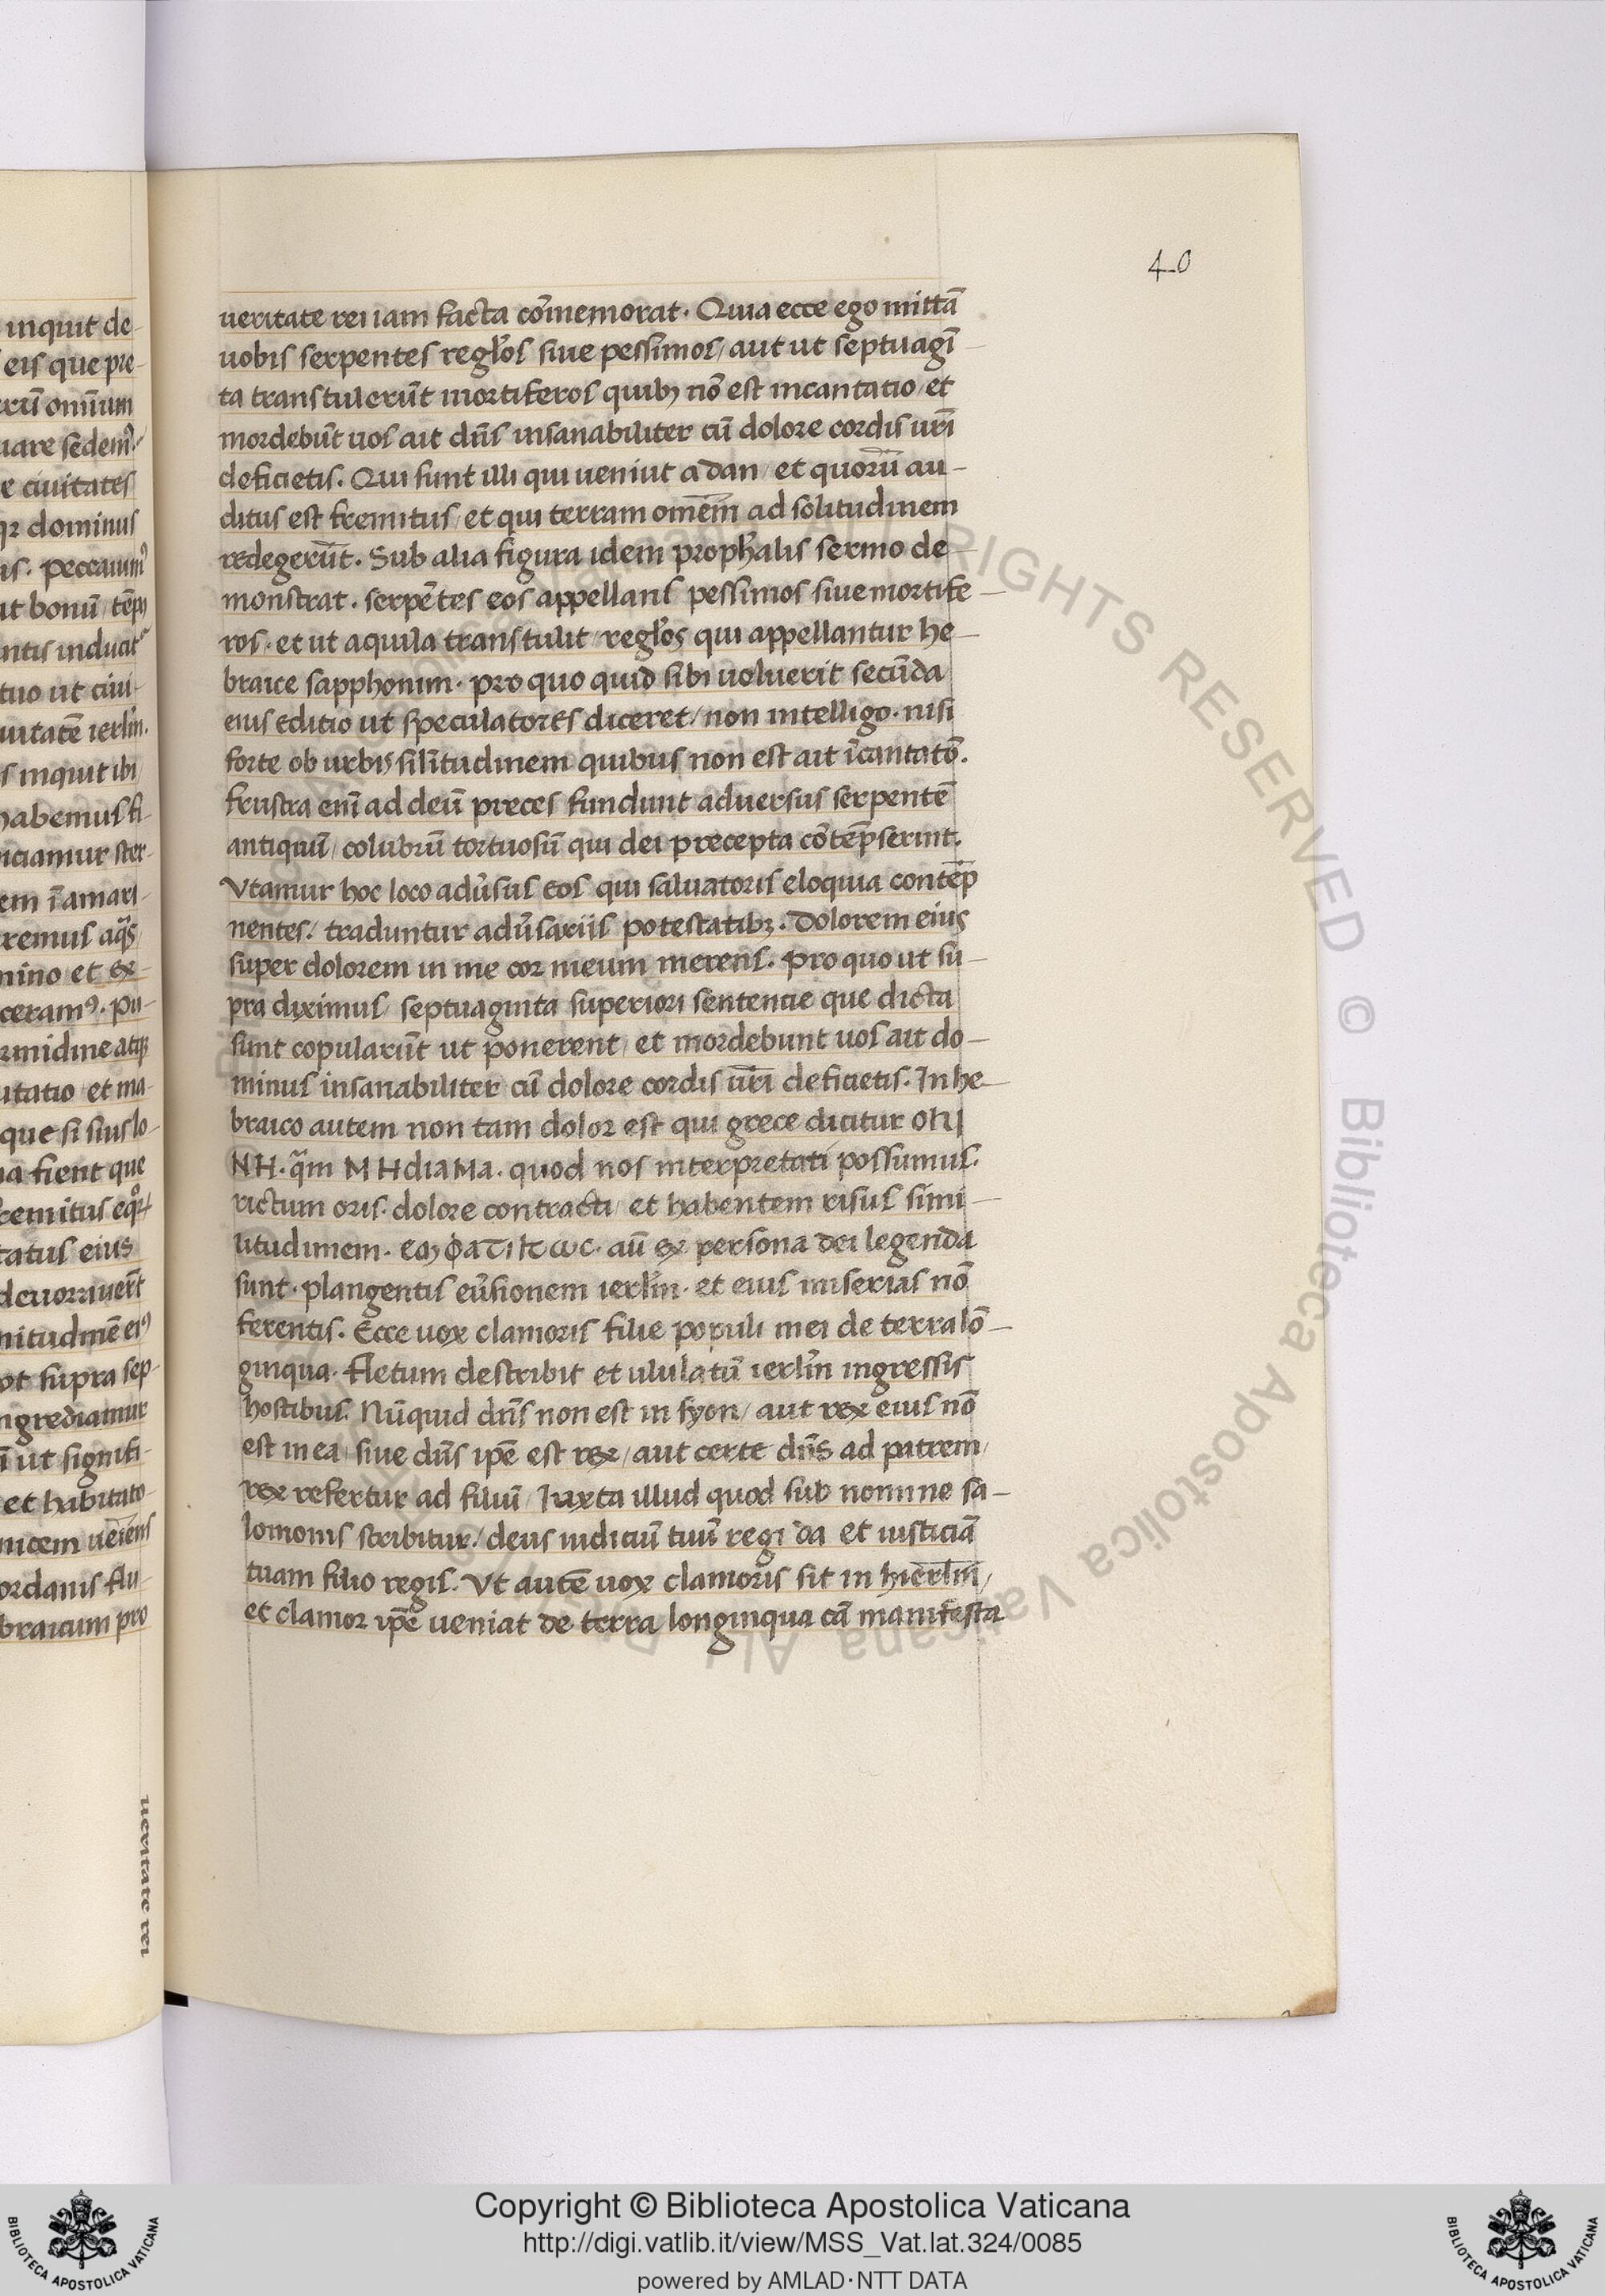 40
inquit de-
eis que pre-
omnium
uare sedem
e ciuitates
dominus
ut bonū
tuo ut ciui-
uitatē ierlm̄.
s inquit ibi
habemus fi-
iciamur ster-
em ī amari-
remus aq̄s
mino et ex-
pu-
rmidine atqꝫ
et ma-
que si sius lo-
a fient que
tatus eius
ut supra sep-
ngrediamur
ī ut signifi-
et habitato-
ordanis flu-
braicum pro
ueritate rei
ueritate rei iam facta cōmemorat. Quia ecce ego mittā
uobis serpentes reglos siue pessimos/ aut ut septuagī-
ta transtulerūt mortiferos quibꝫ nō est incantatio/ et
mordebūt uos ait dn̄s insanabiliter cū dolore cordis ur̄i
deficietis. Qui sunt illi qui ueniūt a dan/ et quorū au-
ditus est fremitus/ et qui terram omēm ad solitudinem
redegerūt. Sub alia figura idem prophalis sermo de-
monstrat. serpētes eos appellans pessimos siue mortife-
ros. et ut aquila transtulit/ reglos qui appellantur he-
braice sapphonim. pro quo quid sibi uoluerit secūda
eius editio ut speculatores diceret/ non intelligo. nisi
forte ob urbis silītudinem quibus non est ait īcantatō.
frustra enī ad deū preces fundunt aduersus serpentē
antiquū/ colubrū tortuosū qui dei precepta cōtēpserint.
Vtamur hoc loco adūsus eos qui saluatoris eloquia contēp
nentes/ traduntur adūsariis potestatibꝫ. Dolorem eius
super dolorem in me cor meum merens. Pro quo ut su-
pra diximus/ septuaginta superiori sententie que dicta
sunt copularūt ut ponerent/ et mordebunt uos ait do-
minus insanabiliter cū dolore cordis ur̄i deficietis. In he-
braico autem non tam dolor est qui grece dicitur
NH. q̄m MHdIAMA. quod nos interpretati possumus.
rictum oris. dolore contracti/ et habentem risus simi-
litudinem. aū ex persona dei legenda
sunt. plangentis eūsionem ierlm̄. et eius miserias nō
ferentis. Ecce uox clamoris filie populi mei de terra lō-
ginqua. Fletum describit et ululatū ierlm̄ ingressis
hostibus. Nūquid dn̄s non est in syon/ aut rex eius nō
est in ea/ siue dn̄s ip̄e est rex/ aut certe dn̄s ad patrem/
rex refertur ad filiū/ Iuxta illud quod sub nomine sa-
lomonis scribitur/ deus iudiciū tuū regi da et iusticiā
tuam filio regis. Vt autē uox clamoris sit in hierlm̄/
et clamor ip̄e ueniat de terra longinqua cā manifesta
Copyright © Biblioteca Apostolica Vaticana
http://digi.vatlib.it/view/MSS_Vat.lat.324/0085
powered by AMLAD·NTT DATA
BIBLIOTECA APOSTOLICA VATICANA
BIBLIOTECA APOSTOLICA VATICANA
ALL RIGHTS RESERVED © Biblioteca Apostolica Vaticana